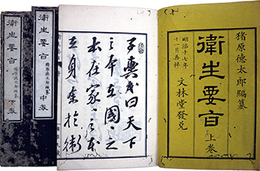 猪原德太郎編纂
衛生要旨 上卷
明治十七年
十一月再梓
文林堂發兌
子輿曰天下
之本在國〻之
本在家〻之本
在身矣於衛
衛生要旨
中卷
衛生要旨
下卷